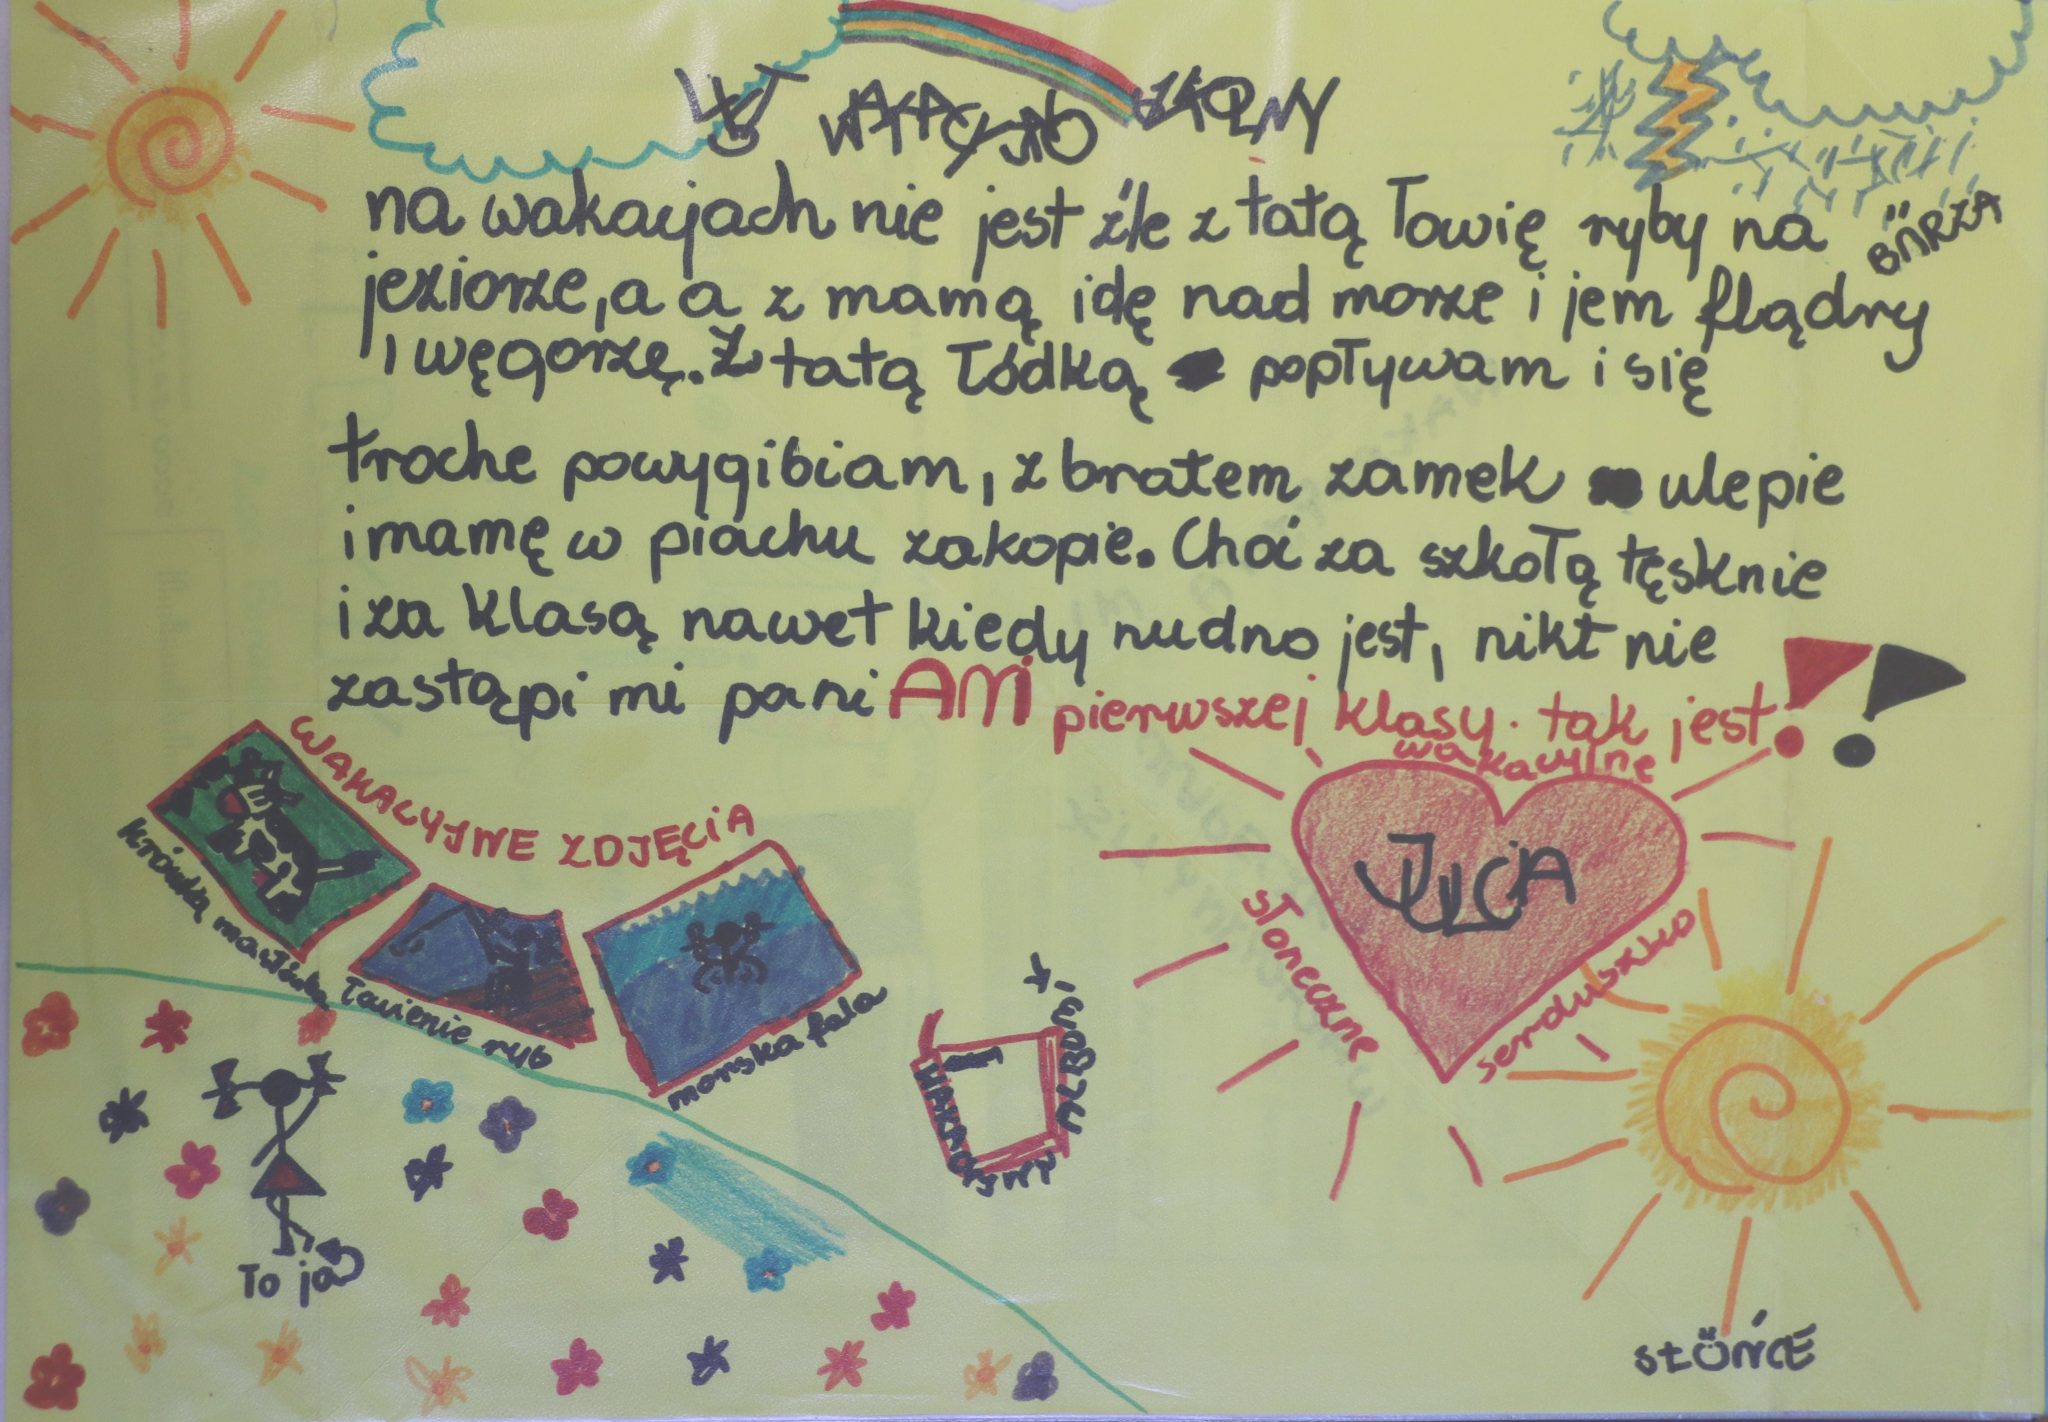 LIST WAKACYJNO SZKOLNY
na wakacjach nie jest źle z tatą łowię ryby na
BURZA
jeziorze, a a z mamą idę nad morze i jem flądry
i węgorzę. Z tatą łódką popływam i się
troche powygibiam, z bratem zamek ulepie
i mamę w piachu zakopie. Choć za szkołą tęsknie
i za klasą nawet kiedy nudno jest, nikt nie
zastąpi mi pani AMI pierwszej klasy. tak jest!!
WAKACYJNE ZDJĘCIA
krówka mućka
łowienie ryb
morska fala
wakacyjne
JULCIA
słoneczne
serduszko
WAKACYJNY
ALBOMIK
To ja
SŁOŃCE